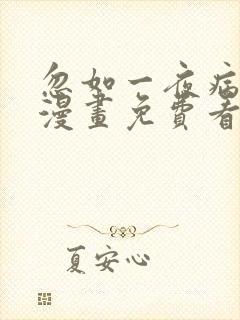 忽如一夜病
漫畫免費看
夏安心